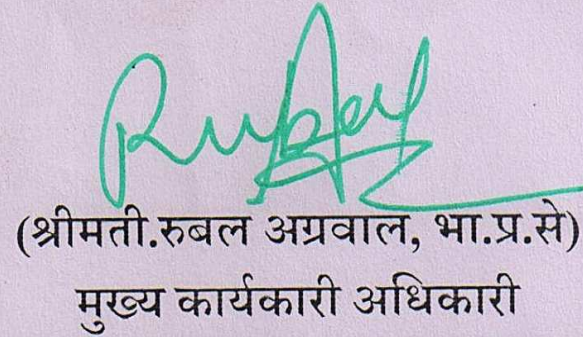 Rubal
(श्रीमती.रुबल अग्रवाल, भा.प्र.से)
मुख्य कार्यकारी अधिकारी